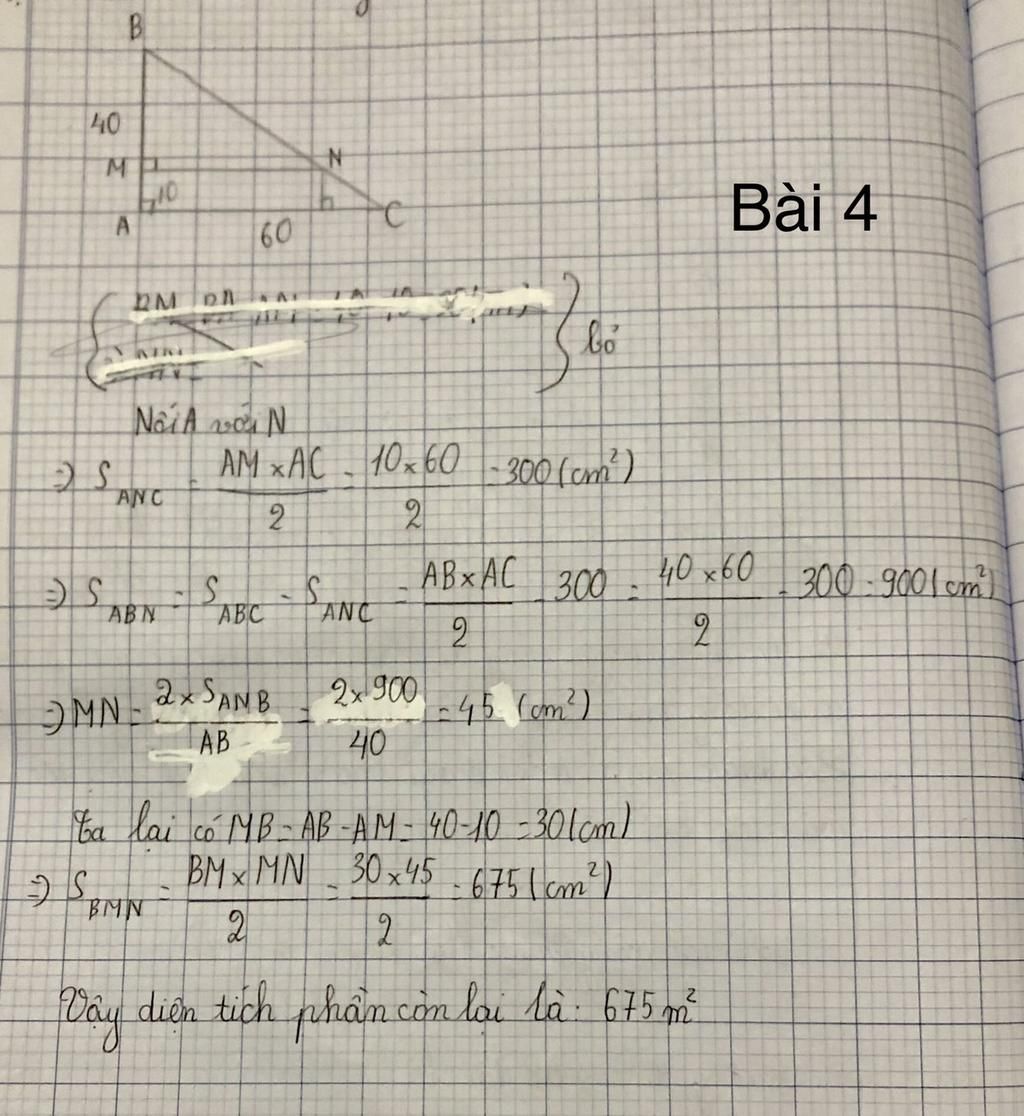 B
40
M
N
10
A
60
C
Bài 4
bỏ
Nối A với N
=> S ANC = AM × AC / 2 = 10 × 60 / 2 = 300 (cm²)
=> S ABN = S ABC - S ANC = AB × AC / 2 - 300 = 40 × 60 / 2 - 300 = 900 (cm²)
=> MN = 2 × S ANB / AB = 2 × 900 / 40 = 45 (cm²)
Ta lại có MB = AB - AM = 40 - 10 = 30 (cm)
=> S BMN = BM × MN / 2 = 30 × 45 / 2 = 675 (cm²)
Vậy diện tích phần còn lại là: 675 m²